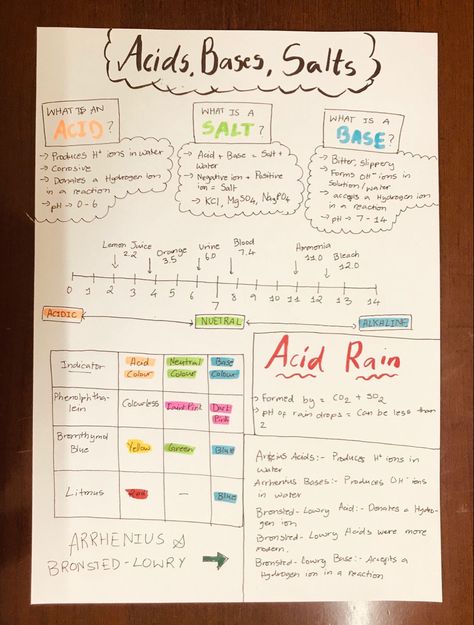 Acids, Bases, Salts
WHAT IS AN
ACID?
→ Produces H⁺ ions in water
→ Corrosive
→ Donates a Hydrogen ion
in a reaction
→ pH → 0-6
WHAT IS A
SALT?
→ Acid + Base = Salt +
Water
→ Negative ion + Positive
ion = Salt
→ KCl, MgSO₄, Na₃PO₄
WHAT IS A
BASE?
→ Bitter, slippery
→ Forms OH⁻ ions in
Solution/water
→ accepts a Hydrogen ion
in a reaction
→ pH → 7-14
Lemon Juice
2.2
Orange
3.5
Urine
6.0
Blood
7.4
Ammonia
11.0
Bleach
12.0
0 1 2 3 4 5 6 7 8 9 10 11 12 13 14
ACIDIC
NUETRAL
ALKALINE
Indicator
Acid
Colour
Neutral
Colour
Base
Colour
Phenolphtha-
lein
Colourless
Faint Pink
Dark
Pink
Bromthymol
Blue
Yellow
Green
Blue
Litmus
Red
–
Blue
ARRHENIUS &
BRONSTED-LOWRY
Acid Rain
→ Formed by = CO₂ + SO₂
→ pH of rain drops = Can be less than
2
Acids:- Produces H⁺ ions in
water
Arrhenius Bases:- Produces OH⁻ ions
in water
Bronsted-Lowry Acid:- Donates a Hydro-
gen ion
Bronsted-Lowry Acids were more
modern.
Bronsted-Lowry Base:- Accepts a
Hydrogen ion in a reaction